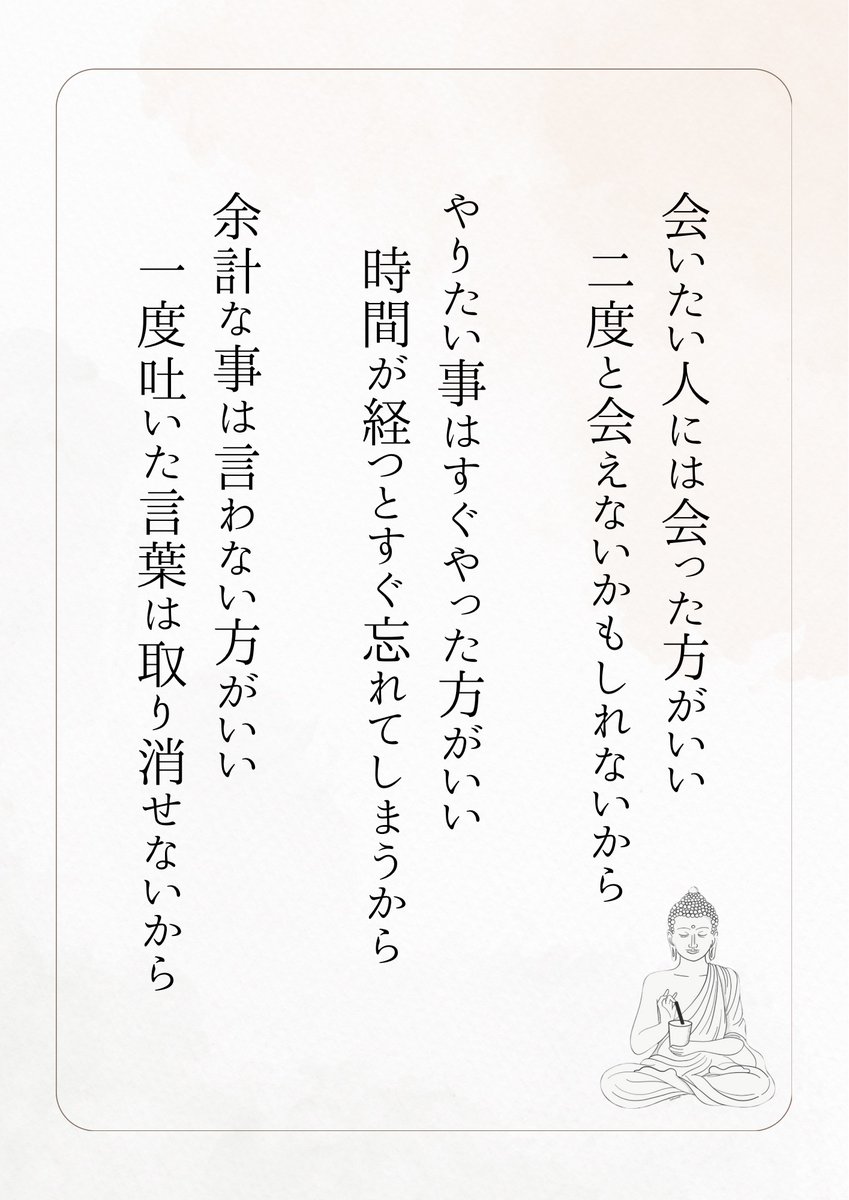 会いたい人には会った方がいい
二度と会えないかもしれないから
やりたい事はすぐやった方がいい
時間が経つとすぐ忘れてしまうから
余計な事は言わない方がいい
一度吐いた言葉は取り消せないから